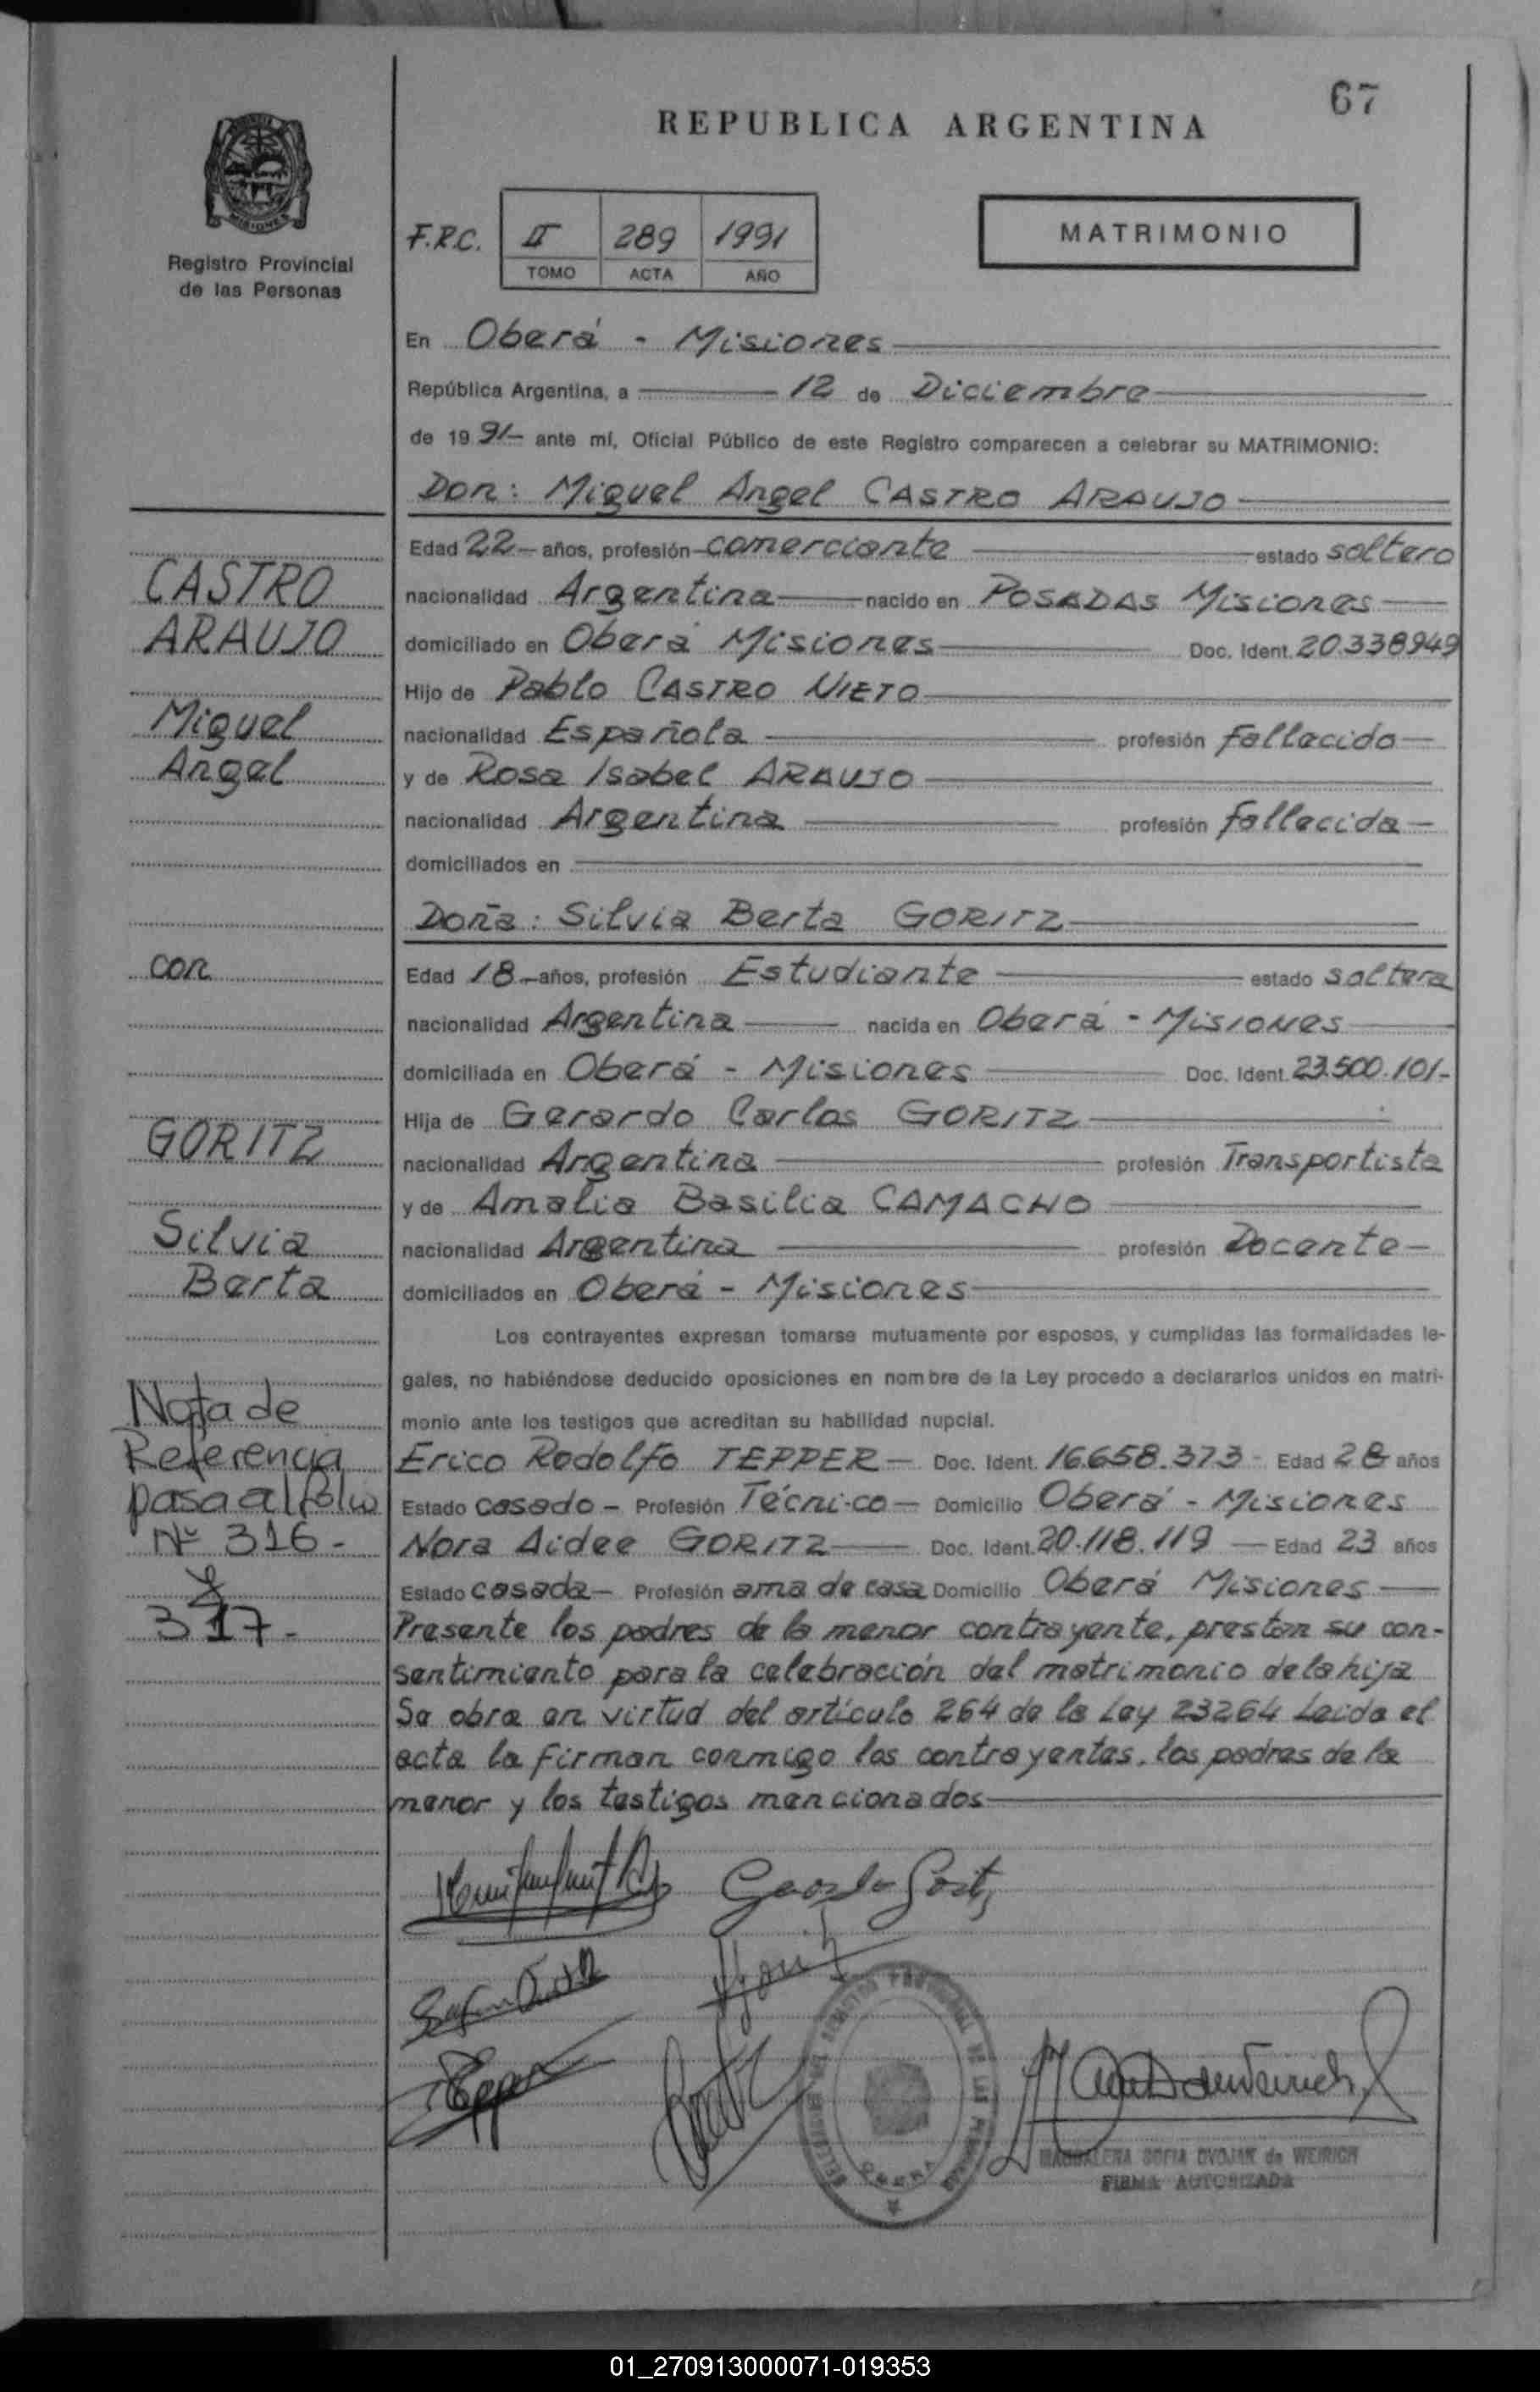 67
REPUBLICA ARGENTINA
MISIONES
Registro Provincial
de las Personas
F.R.C. II 289 1991
TOMO ACTA AÑO
MATRIMONIO
En Oberá - Misiones
República Argentina, a 12 de Diciembre
de 1991- ante mí, Oficial Público de este Registro comparecen a celebrar su MATRIMONIO:
Don: Miguel Angel CASTRO ARAUJO
Edad 22- años, profesión comerciante estado soltero
nacionalidad Argentina nacido en POSADAS Misiones
domiciliado en Oberá Misiones Doc. Ident. 20.338949
Hijo de Pablo CASTRO NIETO
nacionalidad Española profesión fallecido
y de Rosa Isabel ARAUJO
nacionalidad Argentina profesión fallecida
domiciliados en
Doña: Silvia Berta GORITZ
Edad 18- años, profesión Estudiante estado soltera
nacionalidad Argentina nacida en Oberá - Misiones
domiciliada en Oberá - Misiones Doc. Ident. 23.500.101-
Hija de Gerardo Carlos GORITZ
nacionalidad Argentina profesión Transportista
y de Amalia Basilia CAMACHO
nacionalidad Argentina profesión Docente
domiciliados en Oberá - Misiones
Los contrayentes expresan tomarse mutuamente por esposos, y cumplidas las formalidades le-
gales, no habiéndose deducido oposiciones en nombre de la Ley procedo a declararlos unidos en matri-
monio ante los testigos que acreditan su habilidad nupcial.
Erico Rodolfo TEPPER Doc. Ident. 16.658.373- Edad 28 años
Estado casado - Profesión Técnico Domicilio Oberá - Misiones
Nora Aidee GORITZ Doc. Ident. 20.118.119 Edad 23 años
Estado casada - Profesión ama de casa Domicilio Oberá Misiones
Presente los padres de la menor contrayente, prestan su con-
sentimiento para la celebración del matrimonio de la hija
Se obra en virtud del artículo 264 de la Ley 23264 Leida el
acta la firman conmigo los contrayentes, los padres de la
menor y los testigos mencionados
CASTRO
ARAUJO
Miguel
Angel
con
GORITZ
Silvia
Berta
Nota de
Referencia
pasa al folio
Nº 316-
y
317-
OBERA
MAGDALENA SOFIA DVOJAK de WEIRICH
FIRMA AUTORIZADA
01_270913000071-019353